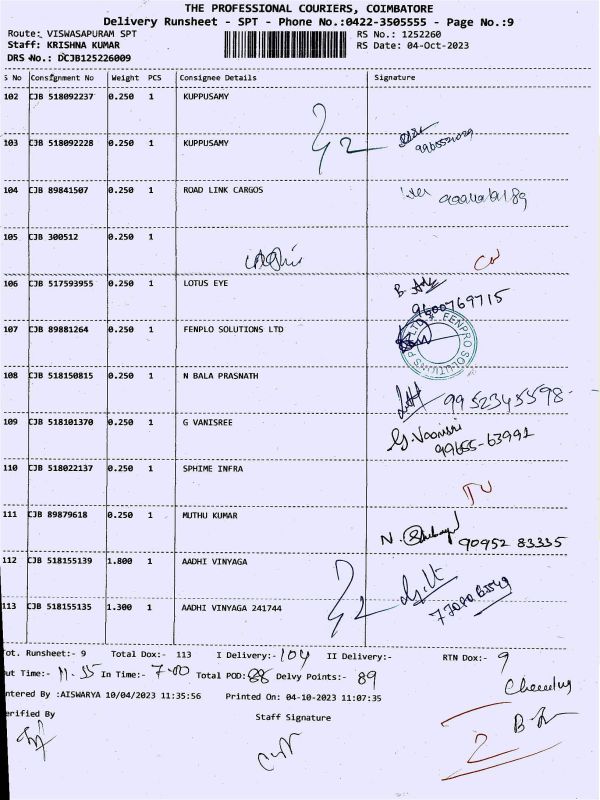 THE PROFESSIONAL COURIERS, COIMBATORE
Delivery Runsheet - SPT - Phone No.:0422-3505555 - Page No.:9
Route: VISWASAPURAM SPT
RS No.: 1252260
Staff: KRISHNA KUMAR
RS Date: 04-Oct-2023
DRS No.: DCJB125226009
S No Consignment No Weight PCS Consignee Details Signature
102 CJB 518092237 0.250 1 KUPPUSAMY
103 CJB 518092228 0.250 1 KUPPUSAMY
104 CJB 89841507 0.250 1 ROAD LINK CARGOS
105 CJB 300512 0.250 1
106 CJB 517593955 0.250 1 LOTUS EYE
9600769715
107 CJB 89881264 0.250 1 FENPLO SOLUTIONS LTD
FENPRO SOLUTIONS P LTD
108 CJB 518150815 0.250 1 N BALA PRASNATH
9952345598
109 CJB 518101370 0.250 1 G VANISREE
99655-63991
110 CJB 518022137 0.250 1 SPHIME INFRA
111 CJB 89879618 0.250 1 MUTHU KUMAR
90952 83335
112 CJB 518155139 1.800 1 AADHI VINYAGA
113 CJB 518155135 1.300 1 AADHI VINYAGA 241744
Tot. Runsheet:- 9 Total Dox:- 113 I Delivery:- 104 II Delivery:- RTN Dox:- 9
Out Time:- 11.55 In Time:- 7.00 Total POD:- 88 Delvy Points:- 89
Entered By :AISWARYA 10/04/2023 11:35:56 Printed On: 04-10-2023 11:07:35
Verified By Staff Signature